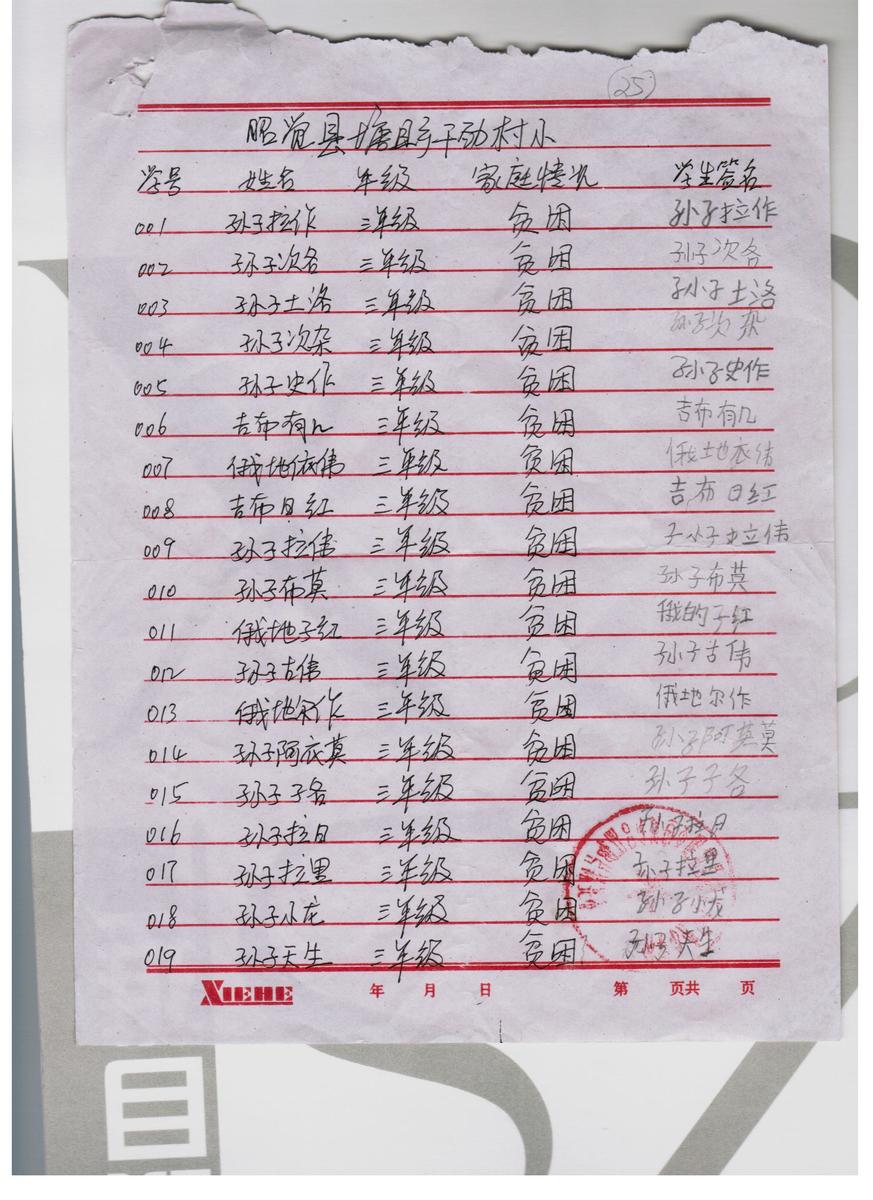 25
昭觉县塘且乡干劲村小
学号 姓名 年级 家庭情况 学生签名
001 孙子拉作 三年级 贫困 孙子拉作
002 孙子次各 三年级 贫困 孙子次各
003 孙子土洛 三年级 贫困 孙子土洛
004 孙子次杂 三年级 贫困 孙子次杂
005 孙子史作 三年级 贫困 孙子史作
006 吉布有几 三年级 贫困 吉布有几
007 俄地依伟 三年级 贫困 俄地衣
008 吉布日红 三年级 贫困 吉布日红
009 孙子拉伟 三年级 贫困 孙子拉伟
010 孙子布莫 三年级 贫困 孙子布莫
011 俄地子红 三年级 贫困 俄的子红
012 孙子古伟 三年级 贫困 孙子古伟
013 俄地尔作 三年级 贫困 俄地尔作
014 孙子阿衣莫 三年级 贫困 孙子阿莫
015 孙子子各 三年级 贫困 孙子子各
016 孙子拉日 三年级 贫困 孙子拉日
017 孙子拉里 三年级 贫困 孙子拉里
018 孙子小龙 三年级 贫困 孙子小龙
019 孙子天生 三年级 贫困 孙子天生
XIEHE 年 月 日 第 页共 页
目